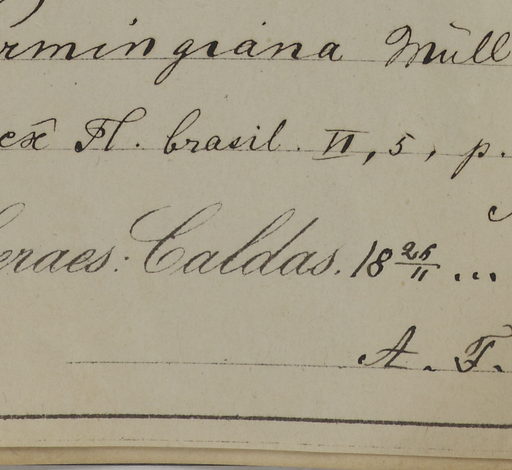 rmingiana Müll
ex Fl. brasil. VI, 5, p.
eraes: Caldas. 18 25/11 ...
A. F.